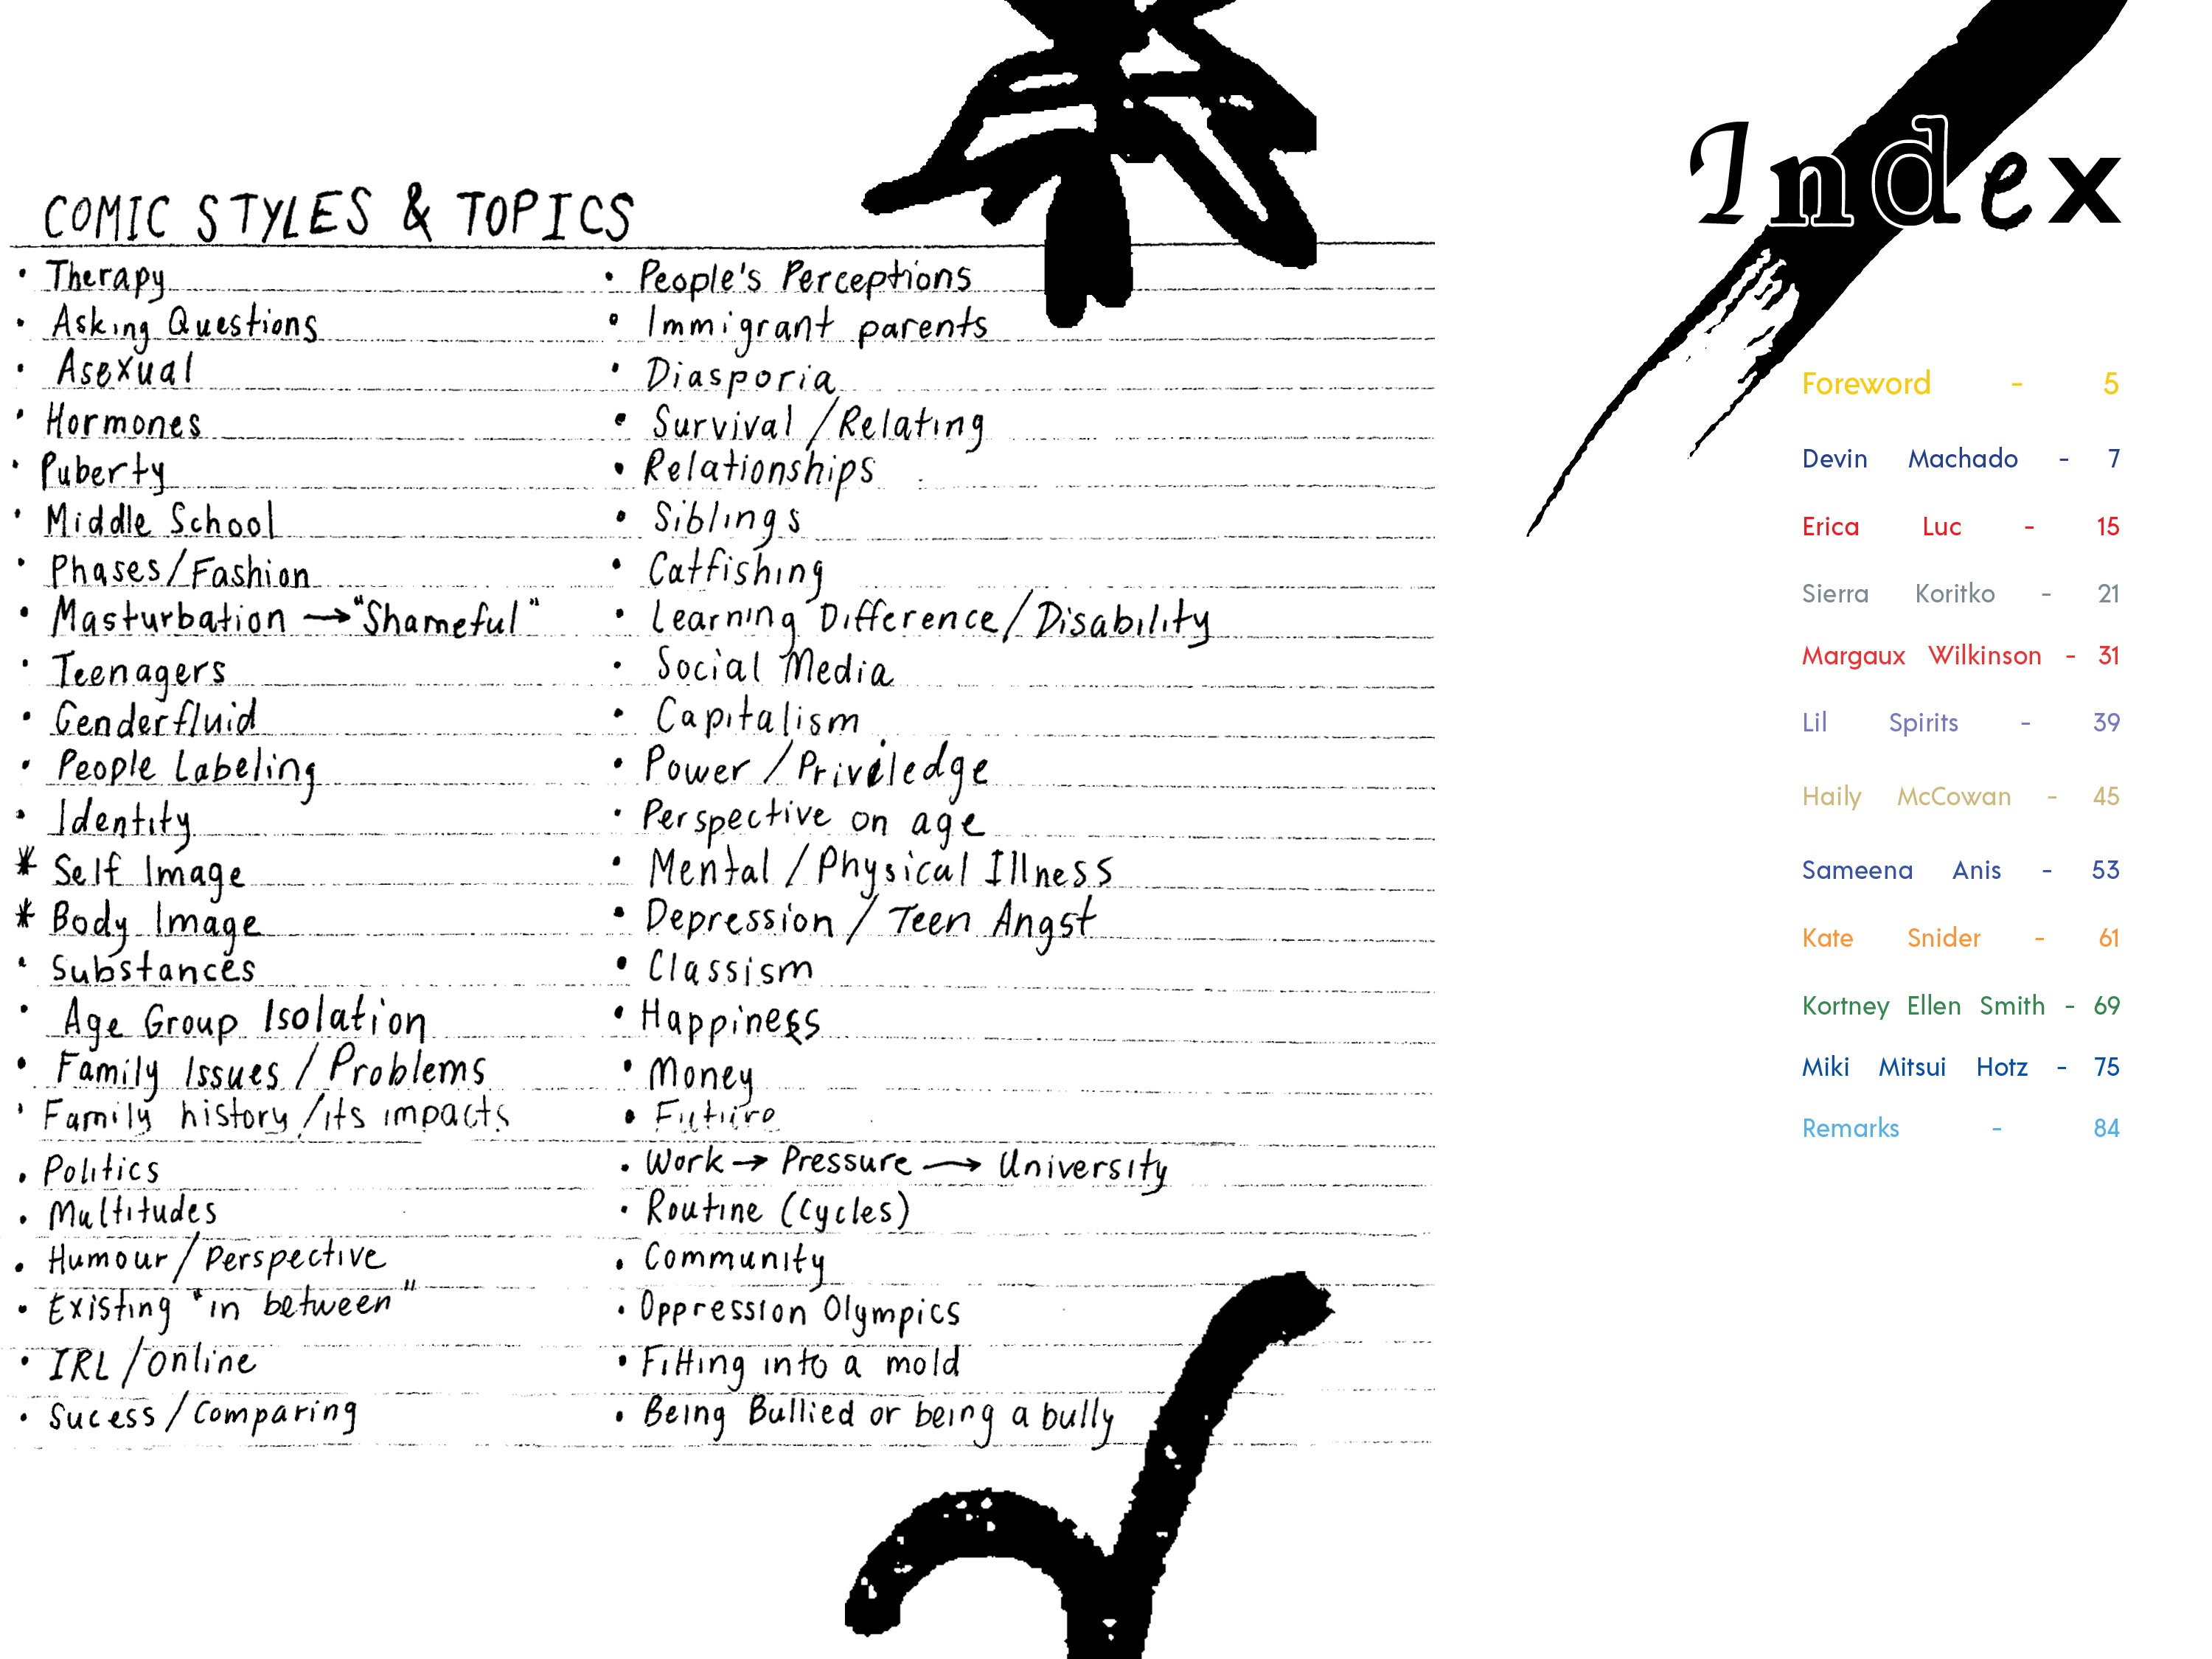 COMIC STYLES & TOPICS
• Therapy
• Asking Questions
• Asexual
• Hormones
• Puberty
• Middle School
• Phases/Fashion
• Masturbation → "Shameful"
• Teenagers
• Genderfluid
• People Labeling
• Identity
* Self Image
* Body Image
• Substances
• Age Group Isolation
• Family Issues / Problems
• Family history /its impacts
• Politics
• Multitudes
• Humour / Perspective
• Existing "in between"
• IRL / online
• Sucess / Comparing
• People's Perceptions
• Immigrant parents
• Diasporia
• Survival / Relating
• Relationships
• Siblings
• Catfishing
• Learning Difference / Disability
• Social Media
• Capitalism
• Power / Priviledge
• Perspective on age
• Mental / Physical Illness
• Depression / Teen Angst
• Classism
• Happiness
• Money
• Future
• Work → Pressure → University
• Routine (Cycles)
• Community
• Oppression Olympics
• Fitting into a mold
• Being Bullied or being a bully
Index
Foreword - 5
Devin Machado - 7
Erica Luc - 15
Sierra Koritko - 21
Margaux Wilkinson - 31
Lil Spirits - 39
Haily McCowan - 45
Sameena Anis - 53
Kate Snider - 61
Kortney Ellen Smith - 69
Miki Mitsui Hotz - 75
Remarks - 84